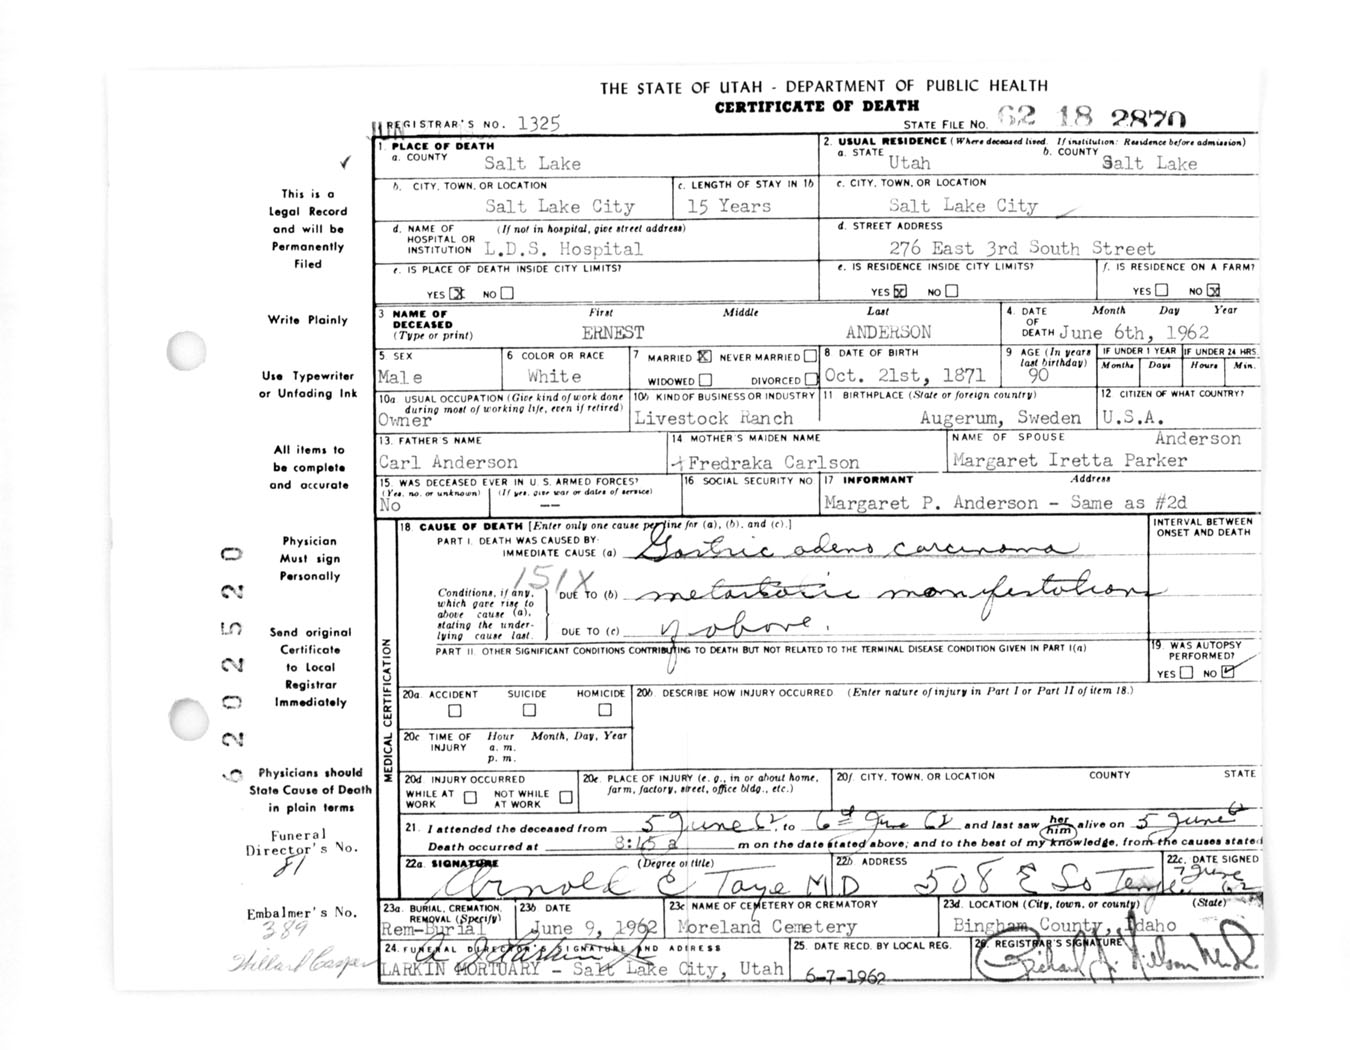 THE STATE OF UTAH - DEPARTMENT OF PUBLIC HEALTH
CERTIFICATE OF DEATH
REGISTRAR'S NO. 1325
STATE FILE NO. 62 18 2870
1. PLACE OF DEATH
a. COUNTY Salt Lake
2. USUAL RESIDENCE (Where deceased lived. If institution: Residence before admission)
a. STATE Utah b. COUNTY Salt Lake
b. CITY, TOWN, OR LOCATION Salt Lake City
c. LENGTH OF STAY IN 1b 15 Years
c. CITY, TOWN, OR LOCATION Salt Lake City
d. NAME OF HOSPITAL OR INSTITUTION (If not in hospital, give street address) L.D.S. Hospital
d. STREET ADDRESS 276 East 3rd South Street
e. IS PLACE OF DEATH INSIDE CITY LIMITS? YES ☒ NO ☐
e. IS RESIDENCE INSIDE CITY LIMITS? YES ☒ NO ☐
f. IS RESIDENCE ON A FARM? YES ☐ NO ☒
3 NAME OF DECEASED (Type or print) First Middle Last
ERNEST ANDERSON
4. DATE OF DEATH Month Day Year
June 6th, 1962
5. SEX Male
6 COLOR OR RACE White
7 MARRIED ☒ NEVER MARRIED ☐
WIDOWED ☐ DIVORCED ☐
8 DATE OF BIRTH Oct. 21st, 1871
9 AGE (In years last birthday) 90
IF UNDER 1 YEAR Months Days
IF UNDER 24 HRS. Hours Min.
10a. USUAL OCCUPATION (Give kind of work done during most of working life, even if retired) Owner
10b KIND OF BUSINESS OR INDUSTRY Livestock Ranch
11 BIRTHPLACE (State or foreign country) Augerum, Sweden
12 CITIZEN OF WHAT COUNTRY? U.S.A.
13. FATHER'S NAME Carl Anderson
14 MOTHER'S MAIDEN NAME Fredraka Carlson
NAME OF SPOUSE Anderson
Margaret Iretta Parker
15. WAS DECEASED EVER IN U.S. ARMED FORCES?
(Yes, no, or unknown) (If yes, give war or dates of service)
No --
16 SOCIAL SECURITY NO
17 INFORMANT Address
Margaret P. Anderson - Same as #2d
18 CAUSE OF DEATH [Enter only one cause per line for (a), (b), and (c).]
PART I. DEATH WAS CAUSED BY:
IMMEDIATE CAUSE (a) Gastric adeno carcinoma
INTERVAL BETWEEN ONSET AND DEATH
151X
Conditions, if any, which gave rise to above cause (a), stating the underlying cause last.
DUE TO (b) metastatic manifestations
DUE TO (c) of above.
PART II. OTHER SIGNIFICANT CONDITIONS CONTRIBUTING TO DEATH BUT NOT RELATED TO THE TERMINAL DISEASE CONDITION GIVEN IN PART I(a)
19. WAS AUTOPSY PERFORMED?
YES ☐ NO ☑
MEDICAL CERTIFICATION
20a. ACCIDENT SUICIDE HOMICIDE
☐ ☐ ☐
20b. DESCRIBE HOW INJURY OCCURRED (Enter nature of injury in Part I or Part II of item 18.)
20c TIME OF INJURY Hour Month, Day, Year
a. m.
p. m.
20d. INJURY OCCURRED
WHILE AT WORK ☐ NOT WHILE AT WORK ☐
20e. PLACE OF INJURY (e. g., in or about home, farm, factory, street, office bldg., etc.)
20f. CITY, TOWN, OR LOCATION COUNTY STATE
21. I attended the deceased from 5 June 62, to 6th June 62 and last saw her him alive on 5 June 62
Death occurred at 8:45 a m on the date stated above; and to the best of my knowledge, from the causes stated
22a. SIGNATURE (Degree or title)
Arnold E Taye MD
22b ADDRESS
508 E So Temple
22c. DATE SIGNED
7 June 62
23a. BURIAL, CREMATION, REMOVAL (Specify) Rem-Burial
23b DATE June 9, 1962
23c NAME OF CEMETERY OR CREMATORY Moreland Cemetery
23d. LOCATION (City, town, or county) (State)
Bingham County, Idaho
24. FUNERAL DIRECTOR'S SIGNATURE AND ADDRESS
LARKIN MORTUARY - Salt Lake City, Utah
25. DATE RECD. BY LOCAL REG. 6-7-1962
26. REGISTRAR'S SIGNATURE
This is a
Legal Record
and will be
Permanently
Filed
Write Plainly
Use Typewriter
or Unfading Ink
All items to
be complete
and accurate
Physician
Must sign
Personally
Send original
Certificate
to Local
Registrar
Immediately
Physicians should
State Cause of Death
in plain terms
Funeral
Director's No.
81
Embalmer's No.
389